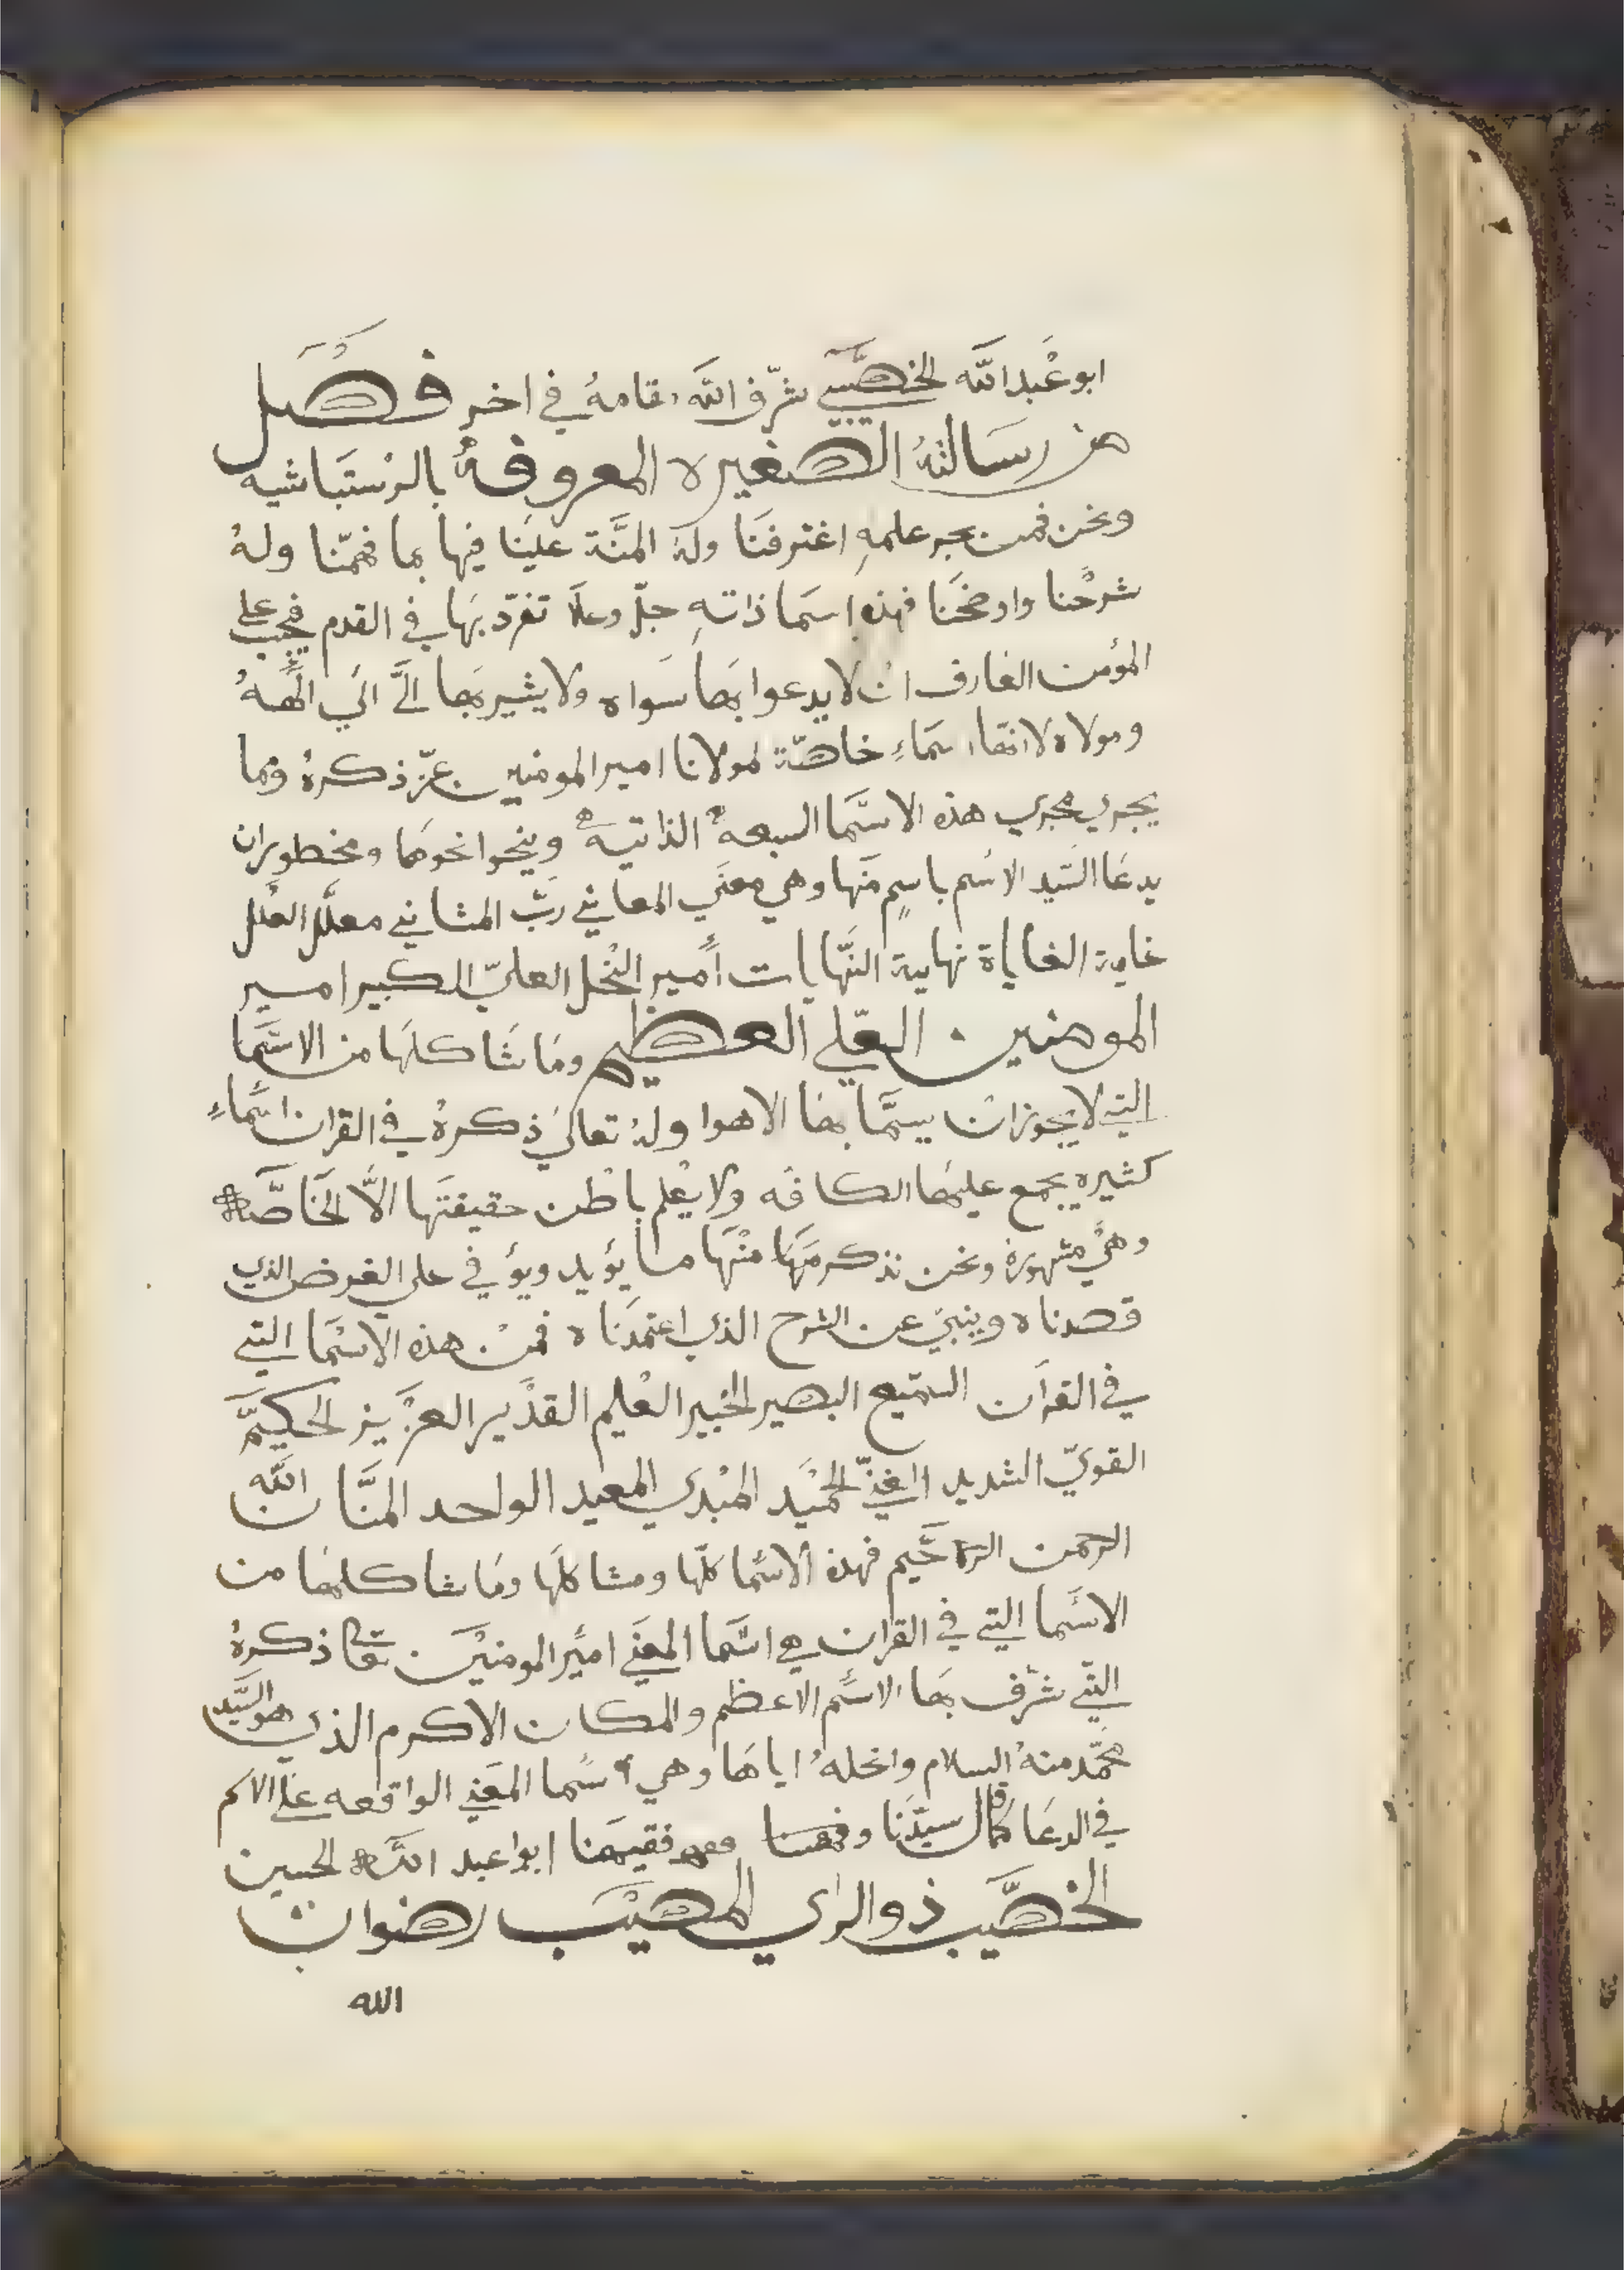 ابو عَبد الله الخصيبي شرّف الله مقامهُ في اخر فصل
من رسالتهُ الصغيره المعروفةُ بالرستباشيه
ونحن فمن بحر علمهِ اغترفنَا ولهُ المنَّة علينَا فيها بما فهمّنا ولهُ
شرحْنا واوضحَنا فهذه اسمَا ذاتهِ جلّ وعلا تفرّد بهَا في القدم فيجب على
المؤمن العَارف ان لا يدعوا بهَا سَواه ولا يشير بهَا الَّى الي الَههُ
ومولاه لانهَا اسمَاءِ خاصّة لمولانا امير المومنين عزّ ذكرهُ ومَا
يجري مجرى هذه الاسّمَا السبعهُ الذاتيه وينحوا نحوهَا ومحظور ان
يدعَا السّيد الاسْم باسمٍ منَها وهي معنَى المعاني ربّ المثاني معلّل العلل
غاية الغاياة نهاية النّهايات أمير النّحل العليّ الكبير امير
المومنين العّلي العظيم ومَا شَاكلهَا من الاسّمَا
التي لا يجوز ان يسمَّا بهَا الا هوا ولهُ تعالى ذكرهُ في القران اسّمَاءِ
كثيره يجمع عليهَا الكافه ولا يعْلم باطن حقيقتهَا الاَّ الخَاصَّه
وهي مشهورة ونحن نذكر منهَا مَا يؤيد ويؤفي على الغرض الذي
قصدناه وينبي عن الشرح الذي اعتمدنَاه فمنْ هذه الاسْمَا التي
في القراَن السّميع البصير الخبير العْليم القدّير العزّيز الحكيمّ
القويّ الشديد الغنيّ الحميْد المبْدي المعيد الواحد المنَّان اللّه
الرحمن الرحَّيم فهذه الاسّمَا كلّها ومشاكلهَا ومَا شاكلهَا من
الاسَّما التي في القران هي اسّمَا المعنَى اميِّر المومنيْن تعَا ذكرهُ
التّي شرّف بهَا الاسّم الاعظم والمكان الاكرم الذي هو السَّيد
محمّد منهُ السلام وانحلهُ اياهَا وهي اسّما المعَني الواقعه علَى الاسم
في الدعَا كمَا قال سيّدنَا وفقيهنا ابوا عبد اللّه الحسين
الخصَّيب ذو الراي المصيْب رضوان
الله